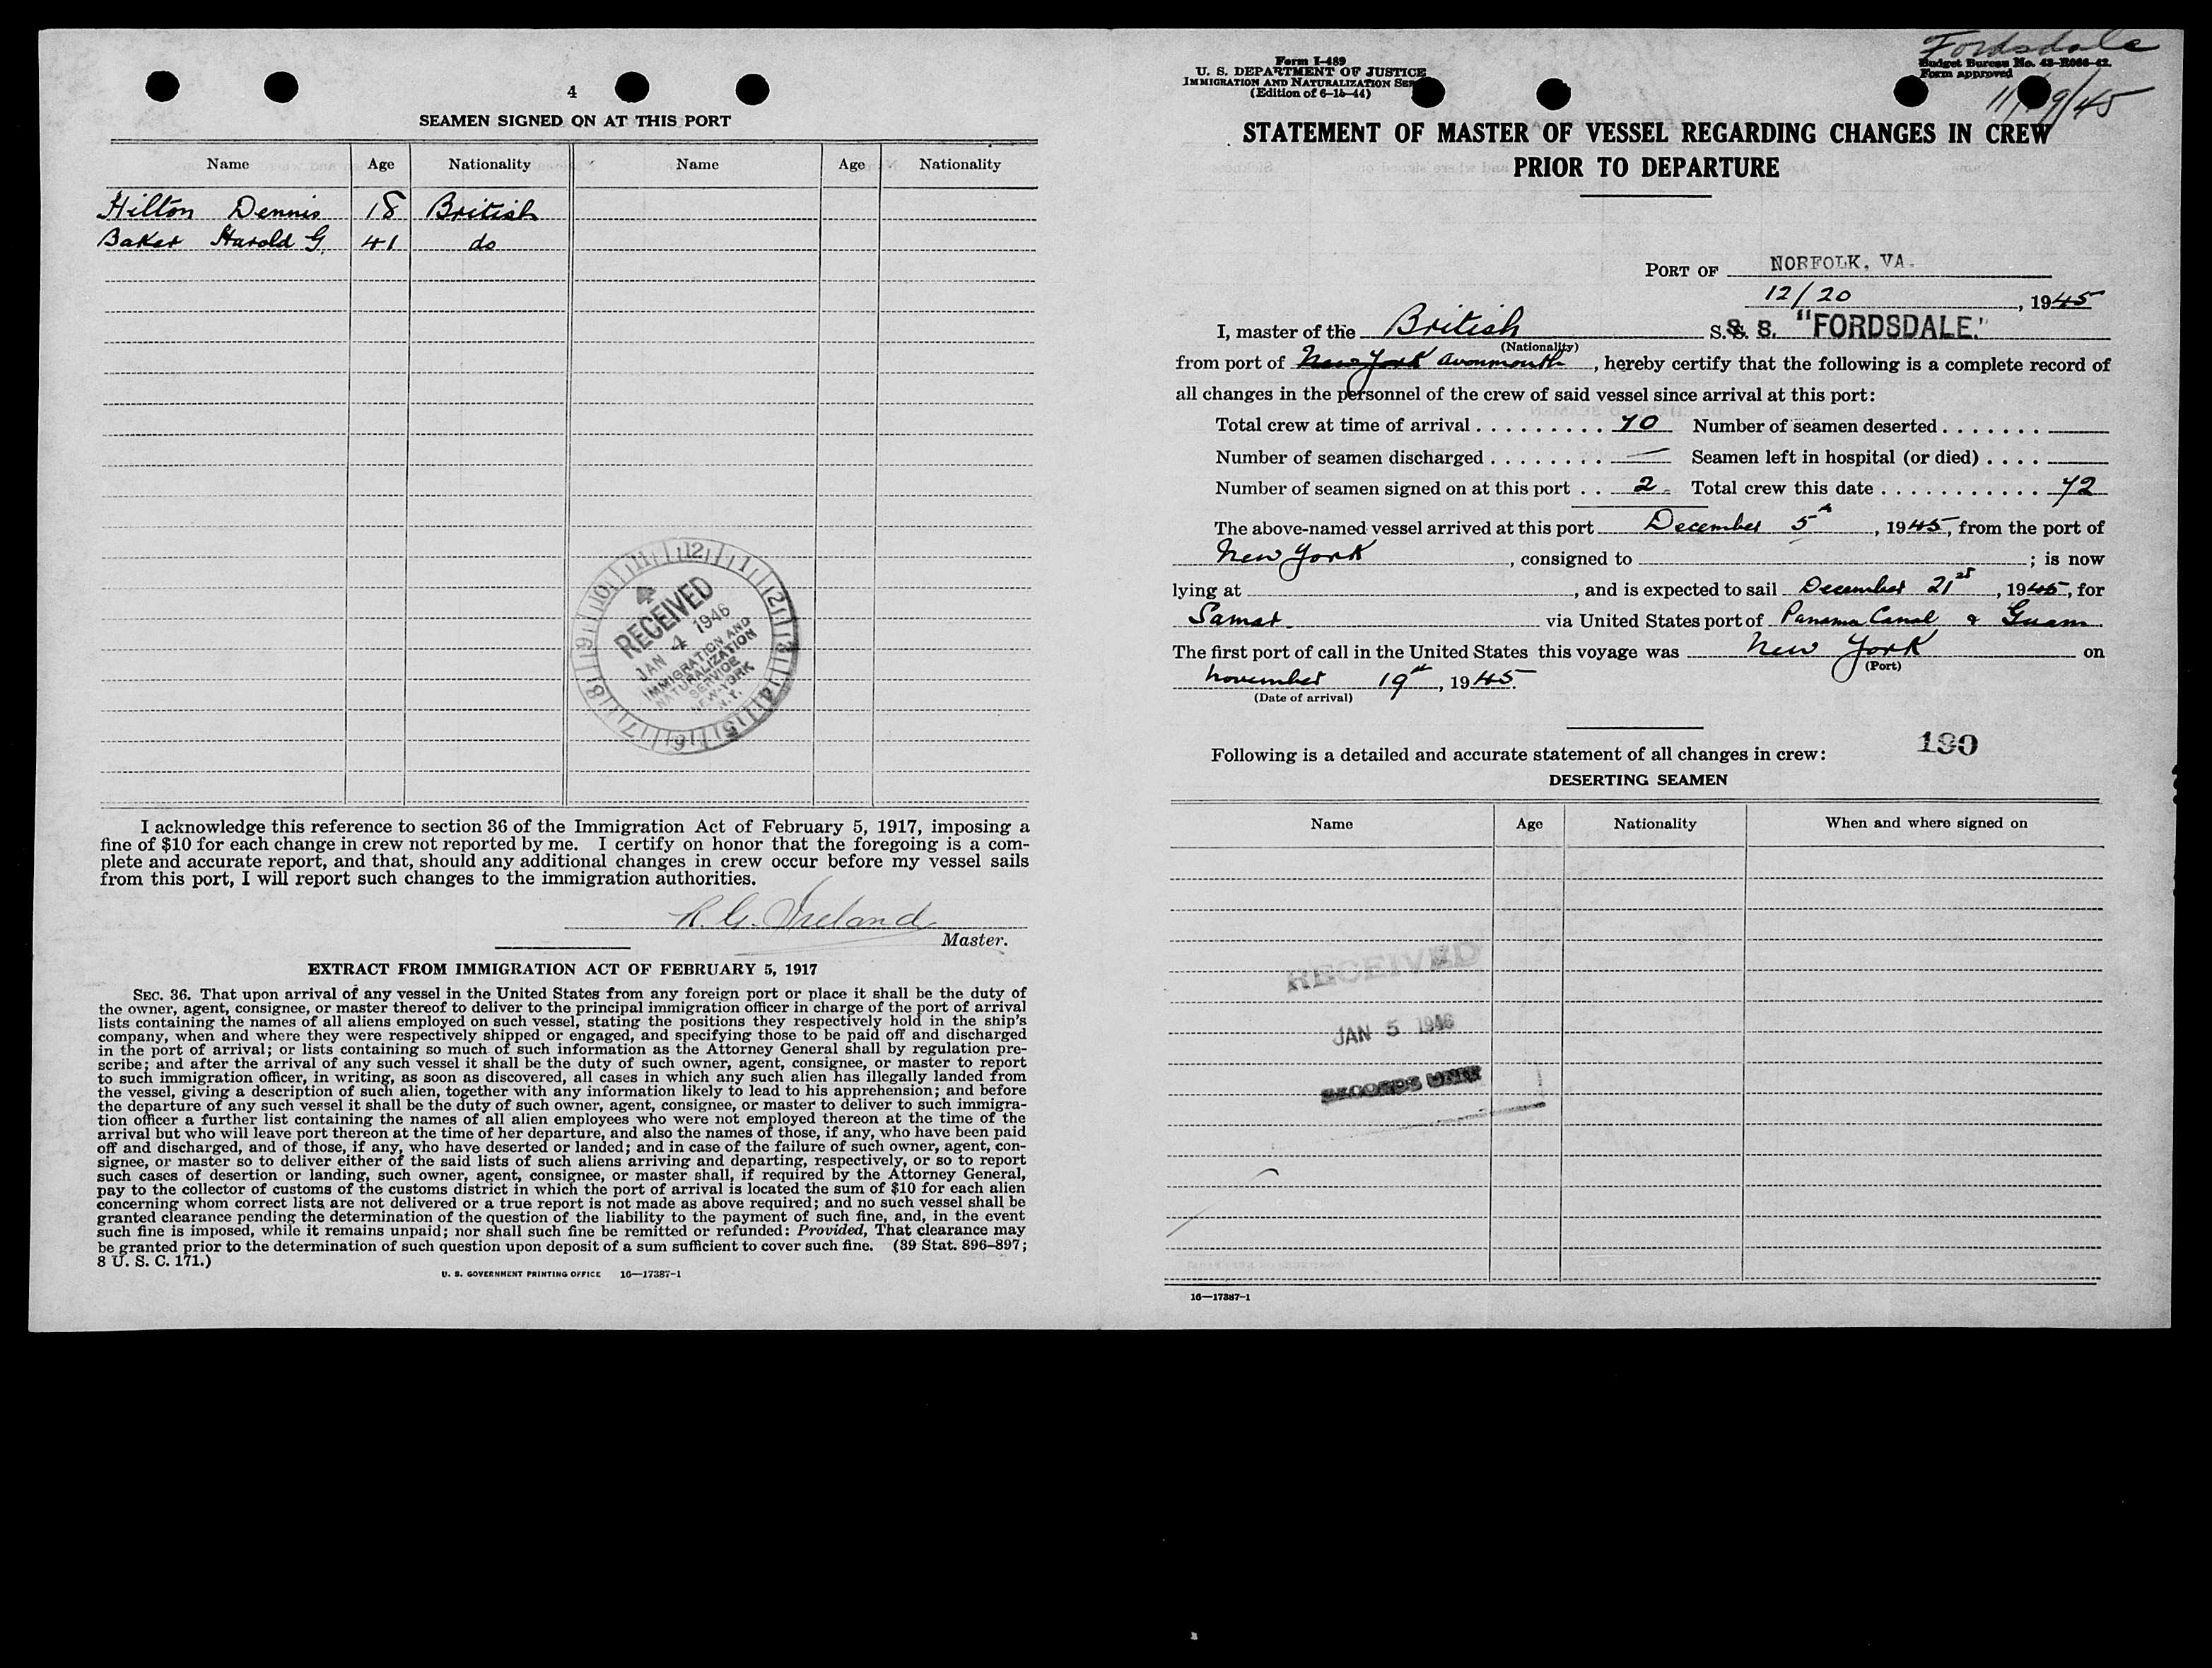 4
SEAMEN SIGNED ON AT THIS PORT
Name Age Nationality Name Age Nationality
Hilton Dennis 18 British
Baker Harold G. 41 do
12 1 2 3 4 5 6 7 8 9 10 11
RECEIVED
JAN 4 1946
IMMIGRATION AND
NATURALIZATION
SERVICE
NEW-YORK
N.Y.
I acknowledge this reference to section 36 of the Immigration Act of February 5, 1917, imposing a
fine of $10 for each change in crew not reported by me. I certify on honor that the foregoing is a com-
plete and accurate report, and that, should any additional changes in crew occur before my vessel sails
from this port, I will report such changes to the immigration authorities.
R. G. Ireland
Master.
EXTRACT FROM IMMIGRATION ACT OF FEBRUARY 5, 1917
SEC. 36. That upon arrival of any vessel in the United States from any foreign port or place it shall be the duty of
the owner, agent, consignee, or master thereof to deliver to the principal immigration officer in charge of the port of arrival
lists containing the names of all aliens employed on such vessel, stating the positions they respectively hold in the ship's
company, when and where they were respectively shipped or engaged, and specifying those to be paid off and discharged
in the port of arrival; or lists containing so much of such information as the Attorney General shall by regulation pre-
scribe; and after the arrival of any such vessel it shall be the duty of such owner, agent, consignee, or master to report
to such immigration officer, in writing, as soon as discovered, all cases in which any such alien has illegally landed from
the vessel, giving a description of such alien, together with any information likely to lead to his apprehension; and before
the departure of any such vessel it shall be the duty of such owner, agent, consignee, or master to deliver to such immigra-
tion officer a further list containing the names of all alien employees who were not employed thereon at the time of the
arrival but who will leave port thereon at the time of her departure, and also the names of those, if any, who have been paid
off and discharged, and of those, if any, who have deserted or landed; and in case of the failure of such owner, agent, con-
signee, or master so to deliver either of the said lists of such aliens arriving and departing, respectively, or so to report
such cases of desertion or landing, such owner, agent, consignee, or master shall, if required by the Attorney General,
pay to the collector of customs of the customs district in which the port of arrival is located the sum of $10 for each alien
concerning whom correct lists are not delivered or a true report is not made as above required; and no such vessel shall be
granted clearance pending the determination of the question of the liability to the payment of such fine, and, in the event
such fine is imposed, while it remains unpaid; nor shall such fine be remitted or refunded: Provided, That clearance may
be granted prior to the determination of such question upon deposit of a sum sufficient to cover such fine. (39 Stat. 896-897;
8 U. S. C. 171.)
U. S. GOVERNMENT PRINTING OFFICE 16—17387-1
Form I-489
U. S. DEPARTMENT OF JUSTICE
IMMIGRATION AND NATURALIZATION
(Edition of 6-15-44)
Fordsdale
Budget Bureau No. 43-R066-42.
Form approved
STATEMENT OF MASTER OF VESSEL REGARDING CHANGES IN CREW
PRIOR TO DEPARTURE
PORT OF NORFOLK, VA.
12/20, 1945
I, master of the British S. S. S. "FORDSDALE."
(Nationality)
from port of New York Avonmouth, hereby certify that the following is a complete record of
all changes in the personnel of the crew of said vessel since arrival at this port:
Total crew at time of arrival . . . . . . . . . 70 Number of seamen deserted . . . . . . .
Number of seamen discharged . . . . . . . . — Seamen left in hospital (or died) . . . .
Number of seamen signed on at this port . . 2 Total crew this date . . . . . . . . . . . . 72
The above-named vessel arrived at this port December 5th, 1945, from the port of
New York, consigned to ; is now
lying at , and is expected to sail December 21st, 1945, for
Samar via United States port of Panama Canal & Guam
The first port of call in the United States this voyage was New York on
(Port)
November 19th, 1945.
(Date of arrival)
190
Following is a detailed and accurate statement of all changes in crew:
DESERTING SEAMEN
Name Age Nationality When and where signed on
RECEIVED
JAN 5 1946
RECORDS UNIT
16—17387-1